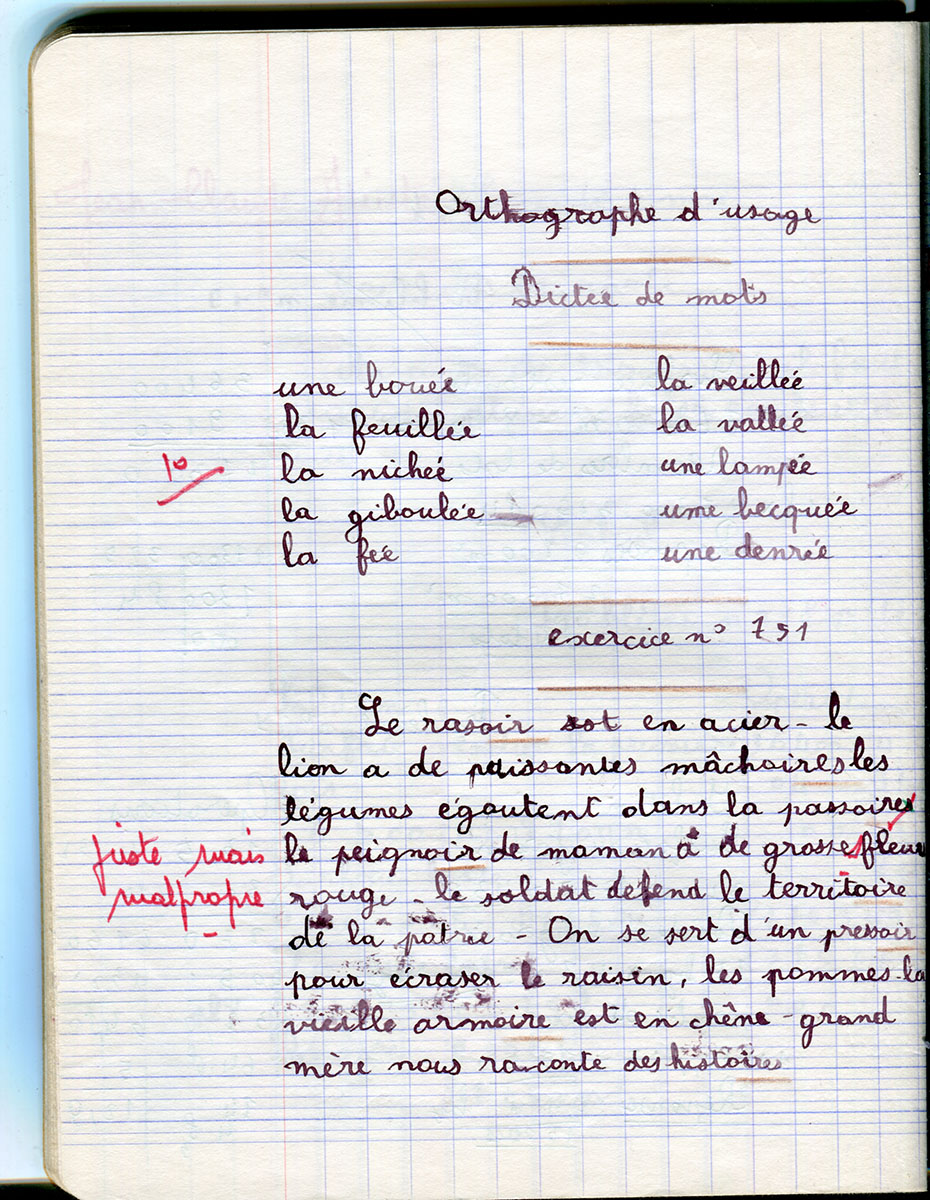 Orthographe d'usage
Dictée de mots
une bouée la veillée
la feuillée la vallée
10 la nichée une lampée
la giboulée une becquée
la fée une denrée
exercice n° 791
Le rasoir est en acier - le
lion a de puissantes mâchoires les
légumes égoutent dans la passoire
juste mais le peignoir de maman a de grosses fleurs
malpropre rouge - le soldat défend le territoire
de la patrie - On se sert d'un pressoir
pour écraser le raisin, les pommes - la
vieille armoire est en chêne - grand
mère nous raconte des histoires